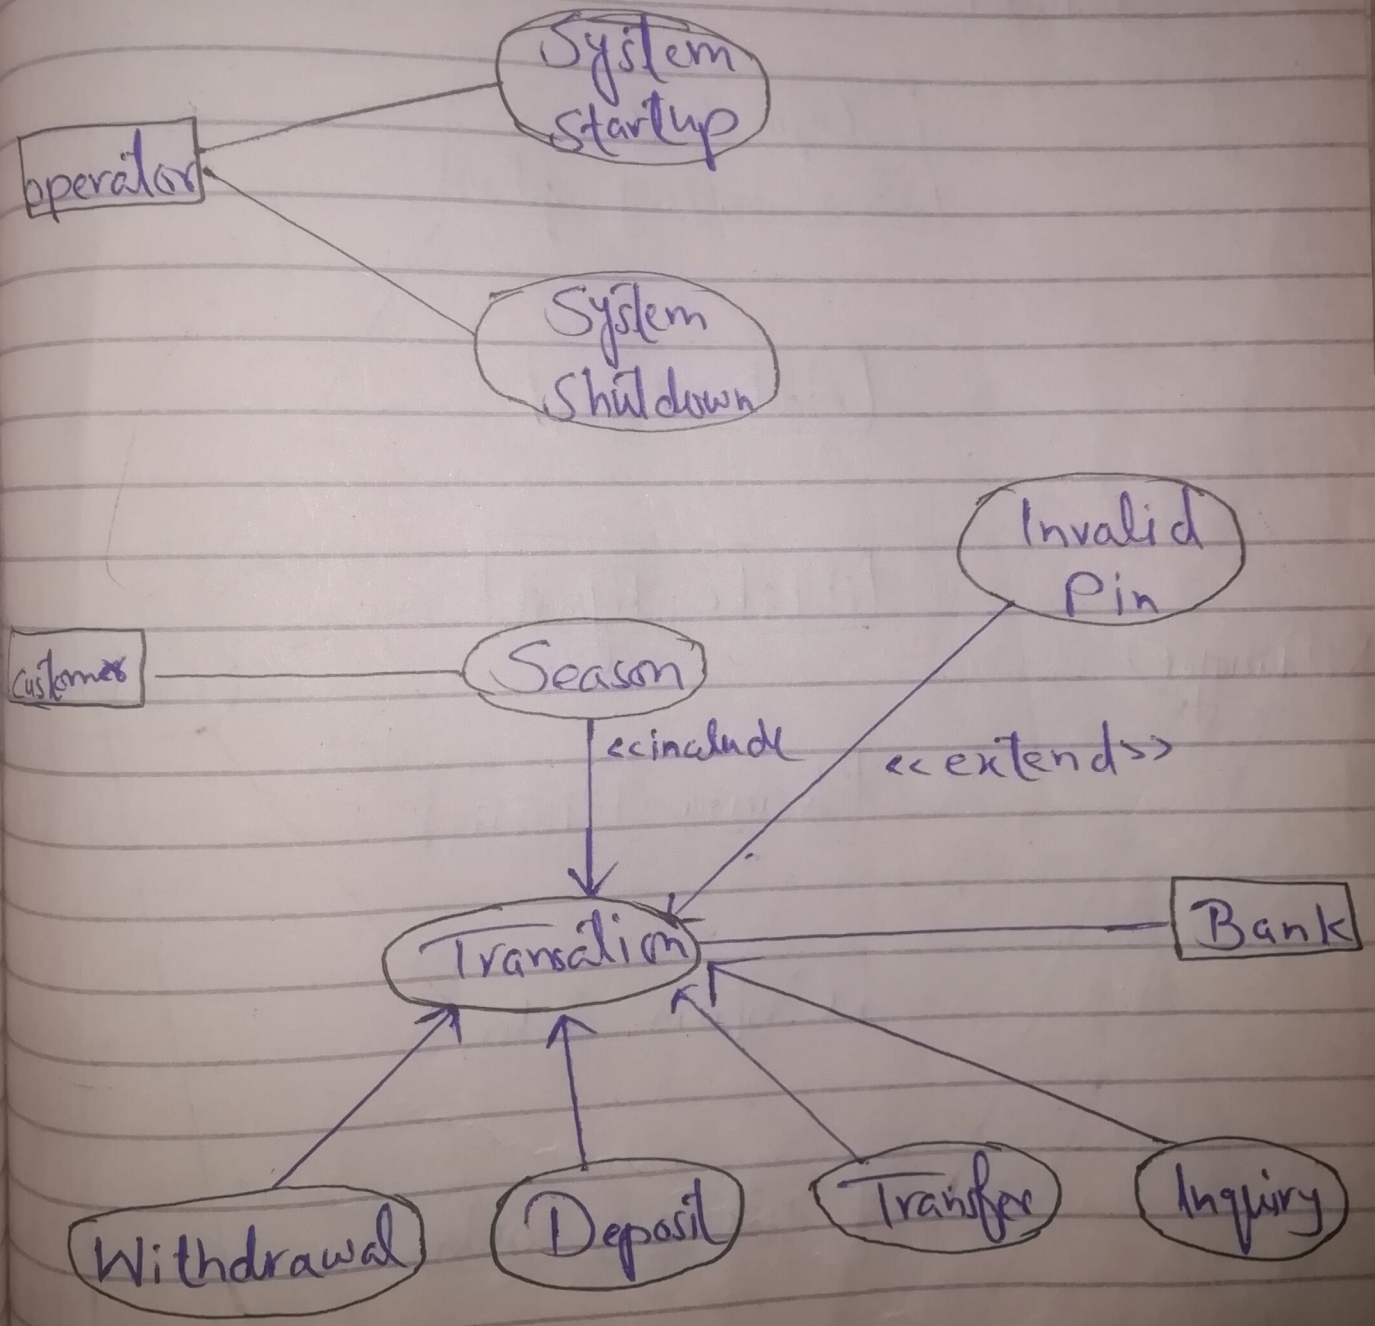 System
Startup
operator
System
Shutdown
Invalid
Pin
Customer
Season
<<include
<<extend>>
Transation
Bank
Withdrawal
Deposit
Transfer
Inquiry